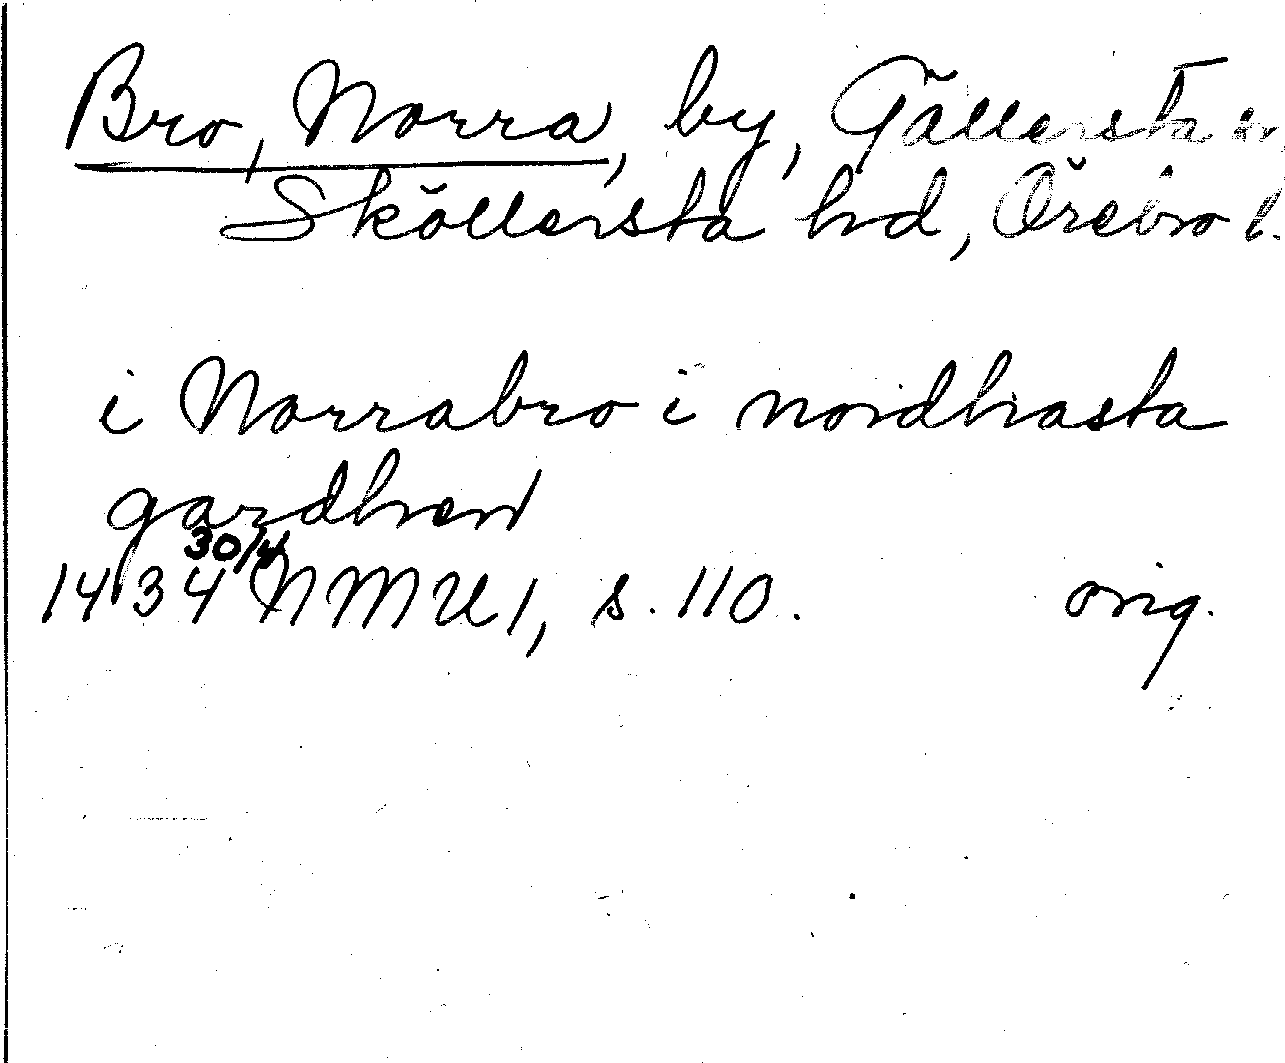 Bro, Norra, by, Gällersta sn,
Sköllersta hd, Örebro l.
i Norrabro i nordhrasta
gardhen
30/4
1434 NMU 1, s. 110. orig.